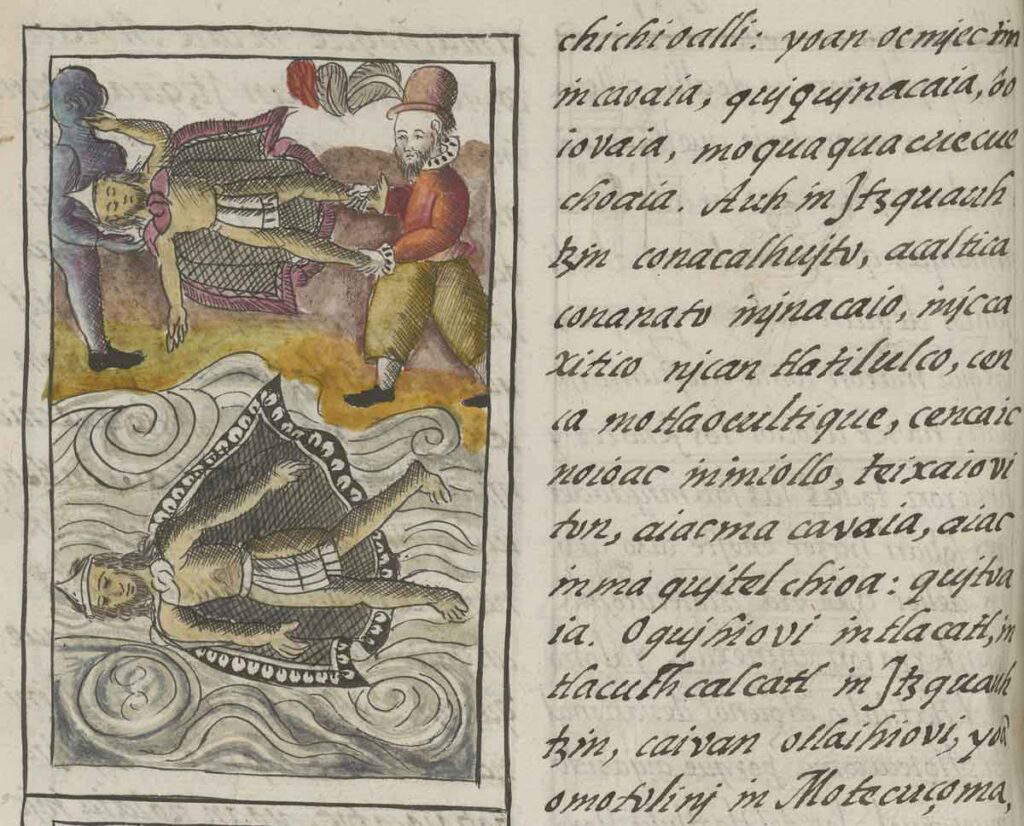 chichioalli: yoan oc mjec tin
in caoaia, qujqujnacaia, ôo
iovaia, moquaquacuecue
choaia. Auh in Jtzquauh
tzin conacalhujtv, acaltica
conanato injnacaio, injcca
xitico njcan tlatilulco, cen
ca motlaocultique, cencaic
noioac inmiollo, teixaiovi
tvn, aiacma cavaia, aiac
inma qujtelchioa: qujtva
ia. Oqujhiovi intlacatl, in
tlacuchcalcatl in Jtzquauh
tzin, caivan ollaihiovi, yoã
omotvlinj in Motecuçoma,